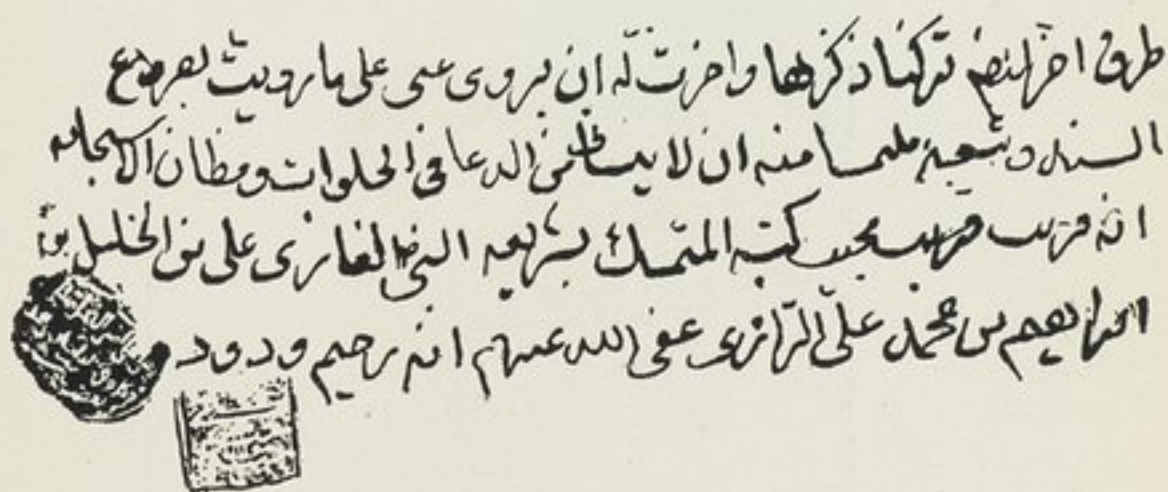 طرق اخر ايضا تركنا ذكرها واجزت له ان يروى عنى على ما رويت بعد
السند وتتبعه ملتمسا منه ان لا ينسانى فى الدعا فى الخلوات ومظان الاستجابه
انه قريب مجيب كتبه المتمسك بشريعه النبى الغازى على بن الخليل بن
ابراهيم بن محمد على الرازى عفى الله عنهم انه رحيم ودود